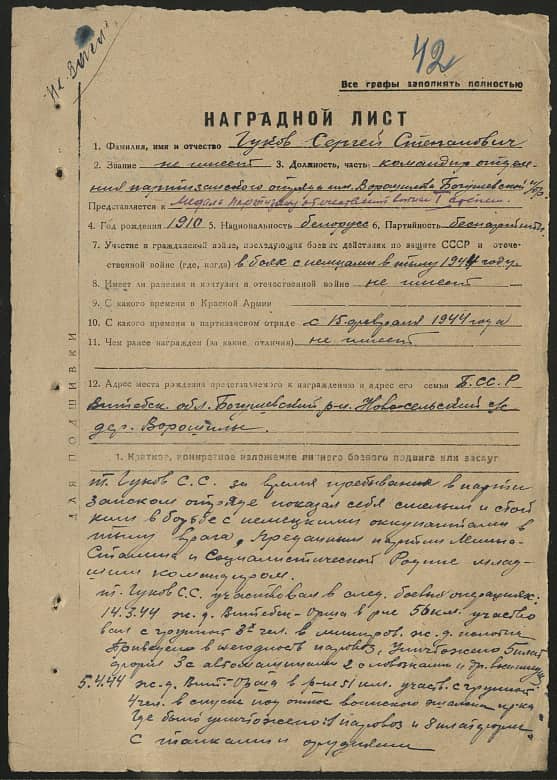 42
Все графы заполнять полностью
НАГРАДНОЙ ЛИСТ
1. Фамилия, имя и отчество Гуков Сергей Степанович
2. Звание не имеет 3. Должность, часть командир отделе-
ния партизанского отряда им. Ворошилова Богушевской п/бр.
Представляется к Медаль Партизану отечествен войны I степени.
4. Год рождения 1910 5. Национальность белорусс 6. Партийность беспартийн.
7. Участие в гражданской войне, последующих боевых действиях по защите СССР и отече-
ственной войне (где, когда) в боях с немцами в тылу 1944 году.
8. Имеет ли ранения и контузии в отечественной войне не имеет
9. С какого времени в Красной Армии
10. С какого времени в партизанском отряде с 15 февраля 1944 года
11. Чем ранее награжден (за какие отличия) не имеет
12. Адрес места рождения представляемого к награждению и адрес его семьи Б.С.С.Р
Витебск. обл. Богушевский р-н. Новосельский с/с
дер. Ворошилы.
ДЛЯ ПОДШИВКИ
1. Краткое, конкретное изложение личного боевого подвига или заслуг
т. Гуков С.С. за время пребывания в парти
занском отряде показал себя смелым и стой
ким в борьбе с немецкими оккупантами в
тылу врага, преданным партии Ленина-
Сталина и Социалистической Родине млад-
шим командиром.
т. Гуков С.С. участвовал в след. боевых операциях:
14.3.44 ж.д. Витебск-Орша в р-не 56 км. участво
вал с группой 8 чел. в миниров. ж.д. полотна
Приведено в негодность паровоз, уничтожено 5 плат
форм 3 с автомашинами 2 с повозками и др.
5.4.44 ж.д. Вит-Орша в р-не 51 км. участв. с группой
4 чел. в спуске под откос воинского эшелона пр-ка
Где было уничтожено: 1 паровоз и 8 платформ
с танками и орудиями